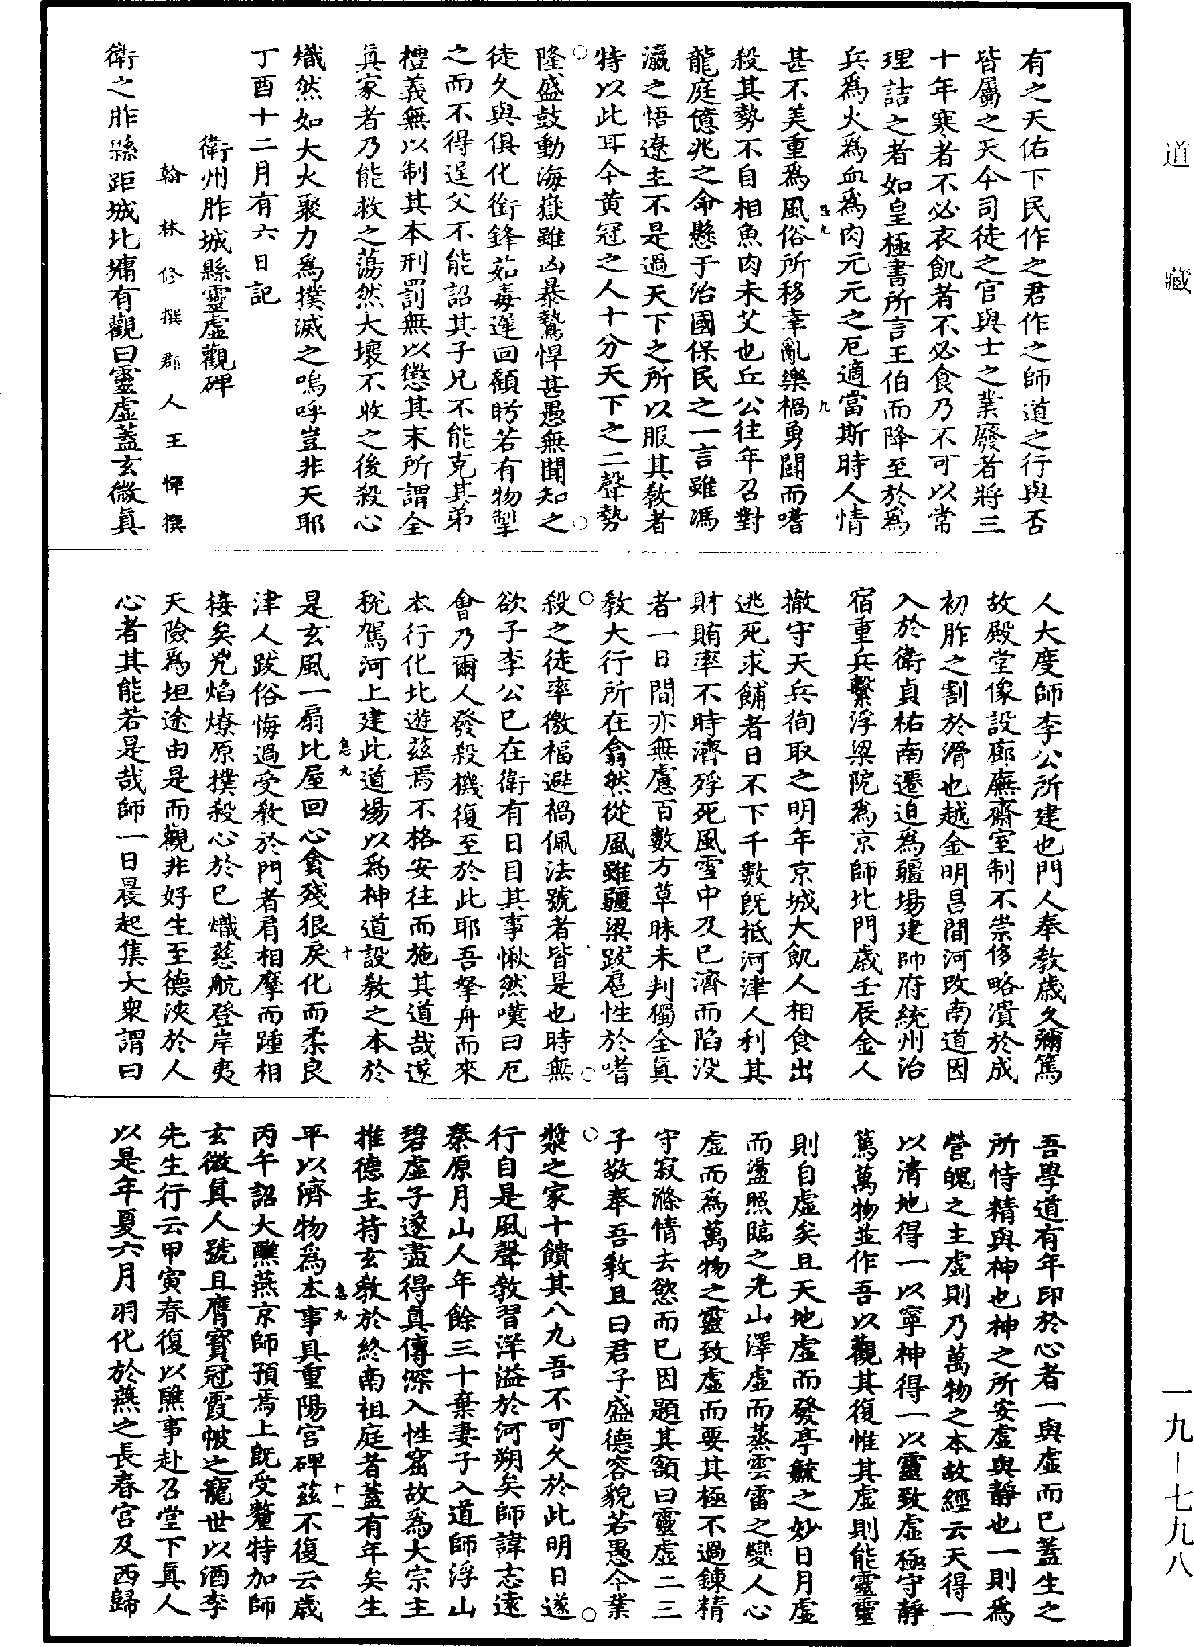 道藏
有之天佑下民作之君作之師道之行與否
皆屬之天今司徒之官與士之業廢者將三
十年寒者不必衣飢者不必食乃不可以常
理詰之者如皇極書所言王伯而降至於爲
兵爲火爲血爲肉元元之厄適當斯時人情
甚不美重爲風俗所移幸亂樂禍勇鬭而嗜
殺其勢不自相魚肉未艾也丘公往年召對
龍庭億兆之命懸于治國保民之一言雖馮
瀛之悟遼主不是過天下之所以服其教者
特以此耳今黄冠之人十分天下之二聲勢
隆盛鼓動海嶽雖凶暴鷙悍甚愚無聞知之
徒久與俱化銜鋒茹毒遲回顧眄若有物掣
之而不得逞父不能詔其子兄不能克其弟
禮義無以制其本刑罰無以懲其末所謂全
真家者乃能救之蕩然大壞不收之後殺心
熾然如大火聚力爲撲滅之嗚呼豈非天耶
丁酉十二月有六日記
衛州胙城縣靈虛觀碑
翰林修撰郡人王惲撰
衛之胙縣距城北墉有觀曰靈虛蓋玄微真
人大度師李公所建也門人奉教歲久彌篤
故殿堂像設廊廡齋室制不崇侈略潰於成
初胙之割於滑也越金明昌間河改南道因
入於衛貞祐南遷迫爲疆場建帥府統州治
宿重兵繫浮梁院爲京師北門歲壬辰金人
撤守天兵徇取之明年京城大飢人相食出
逃死求餔者日不下千數既抵河津人利其
財賄率不時濟殍死風雪中及已濟而陷没
者一日間亦無慮百數方草昧未判獨全真
教大行所在翕然從風雖疆梁跋扈性於嗜
殺之徒率徼福避禍佩法號者皆是也時無
欲子李公已在衛有日目其事愀然嘆曰厄
會乃爾人發殺機復至於此耶吾拏舟而來
本行化北遊兹焉不格安往而施其道哉遂
税駕河上建此道場以爲神道設教之本於
是玄風一扇比屋回心貪殘狠戾化而柔良
津人跋俗悔過受教於門者肩相摩而踵相
接矣兇焰燎原撲殺心於已熾慈航登岸夷
天險爲坦途由是而觀非好生至德浹於人
心者其能若是哉師一日晨起集大衆謂曰
吾學道有年印於心者一與虛而已蓋生之
所恃精與神也神之所安虛與靜也一則爲
營魄之主虛則乃萬物之本故經云天得一
以清地得一以寧神得一以靈致虛極守靜
篤萬物並作吾以觀其復惟其虛則能靈靈
則自虛矣且天地虛而發亭毓之妙日月虛
而盪照臨之光山澤虛而蒸雲雷之變人心
虛而爲萬物之靈致虛而要其極不過鍊精
守寂滌情去慾而已因題其額曰靈虛二三
子敬奉吾教且曰君子盛德容貌若愚今業
漿之家十饋其八九吾不可久於此明日遂
行自是風聲教習洋溢於河朔矣師諱志遠
秦原月山人年餘三十棄妻子入道師浮山
碧虛子遂盡得真傳深入性窟故爲大宗主
推德主持玄教於終南祖庭者蓋有年矣生
平以濟物爲本事具重陽宫碑兹不復云歲
丙午詔大醮燕京師預焉上既受釐特加師
玄微真人號且膺寶冠霞帔之寵世以酒李
先生行云甲寅春復以醮事赴召堂下真人
以是年夏六月羽化於燕之長春宫及西歸
一九—七九八